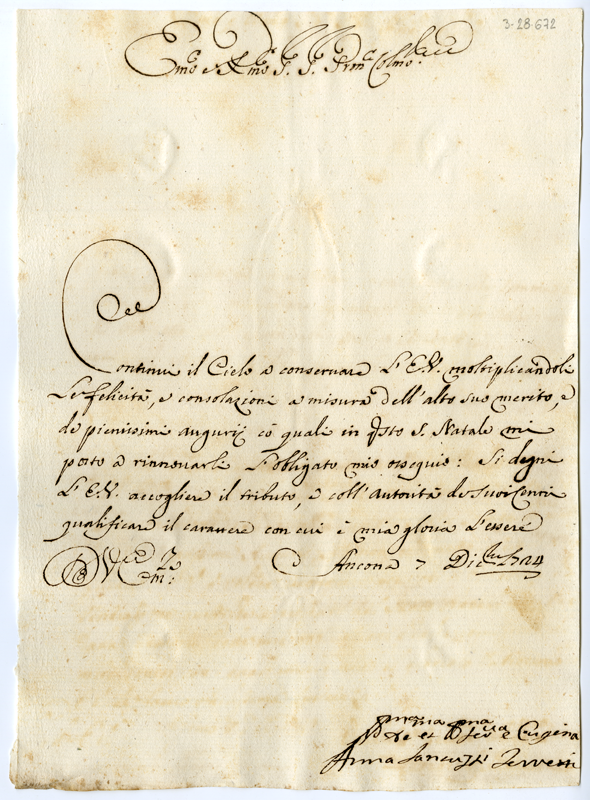 3-28-672
Emo e Rmo S. S. Prõn Colmo.
Continui il Cielo a conservare L'E.V. moltiplicandole
Le felicità, e consolazioni a misura dell'alto suo merito, e
de pienissimi augurij cõ quali in Qsto S. Natale mi
porto a rinnouarle L'obligato mio ossequio: Si degni
L'E.V. accogliere il tributo, e coll'autorità de suoi cenni
qualificare il carattere con cui è mia gloria L'essere
Ancona 7 Dicbre 1724
Cugina
Anna